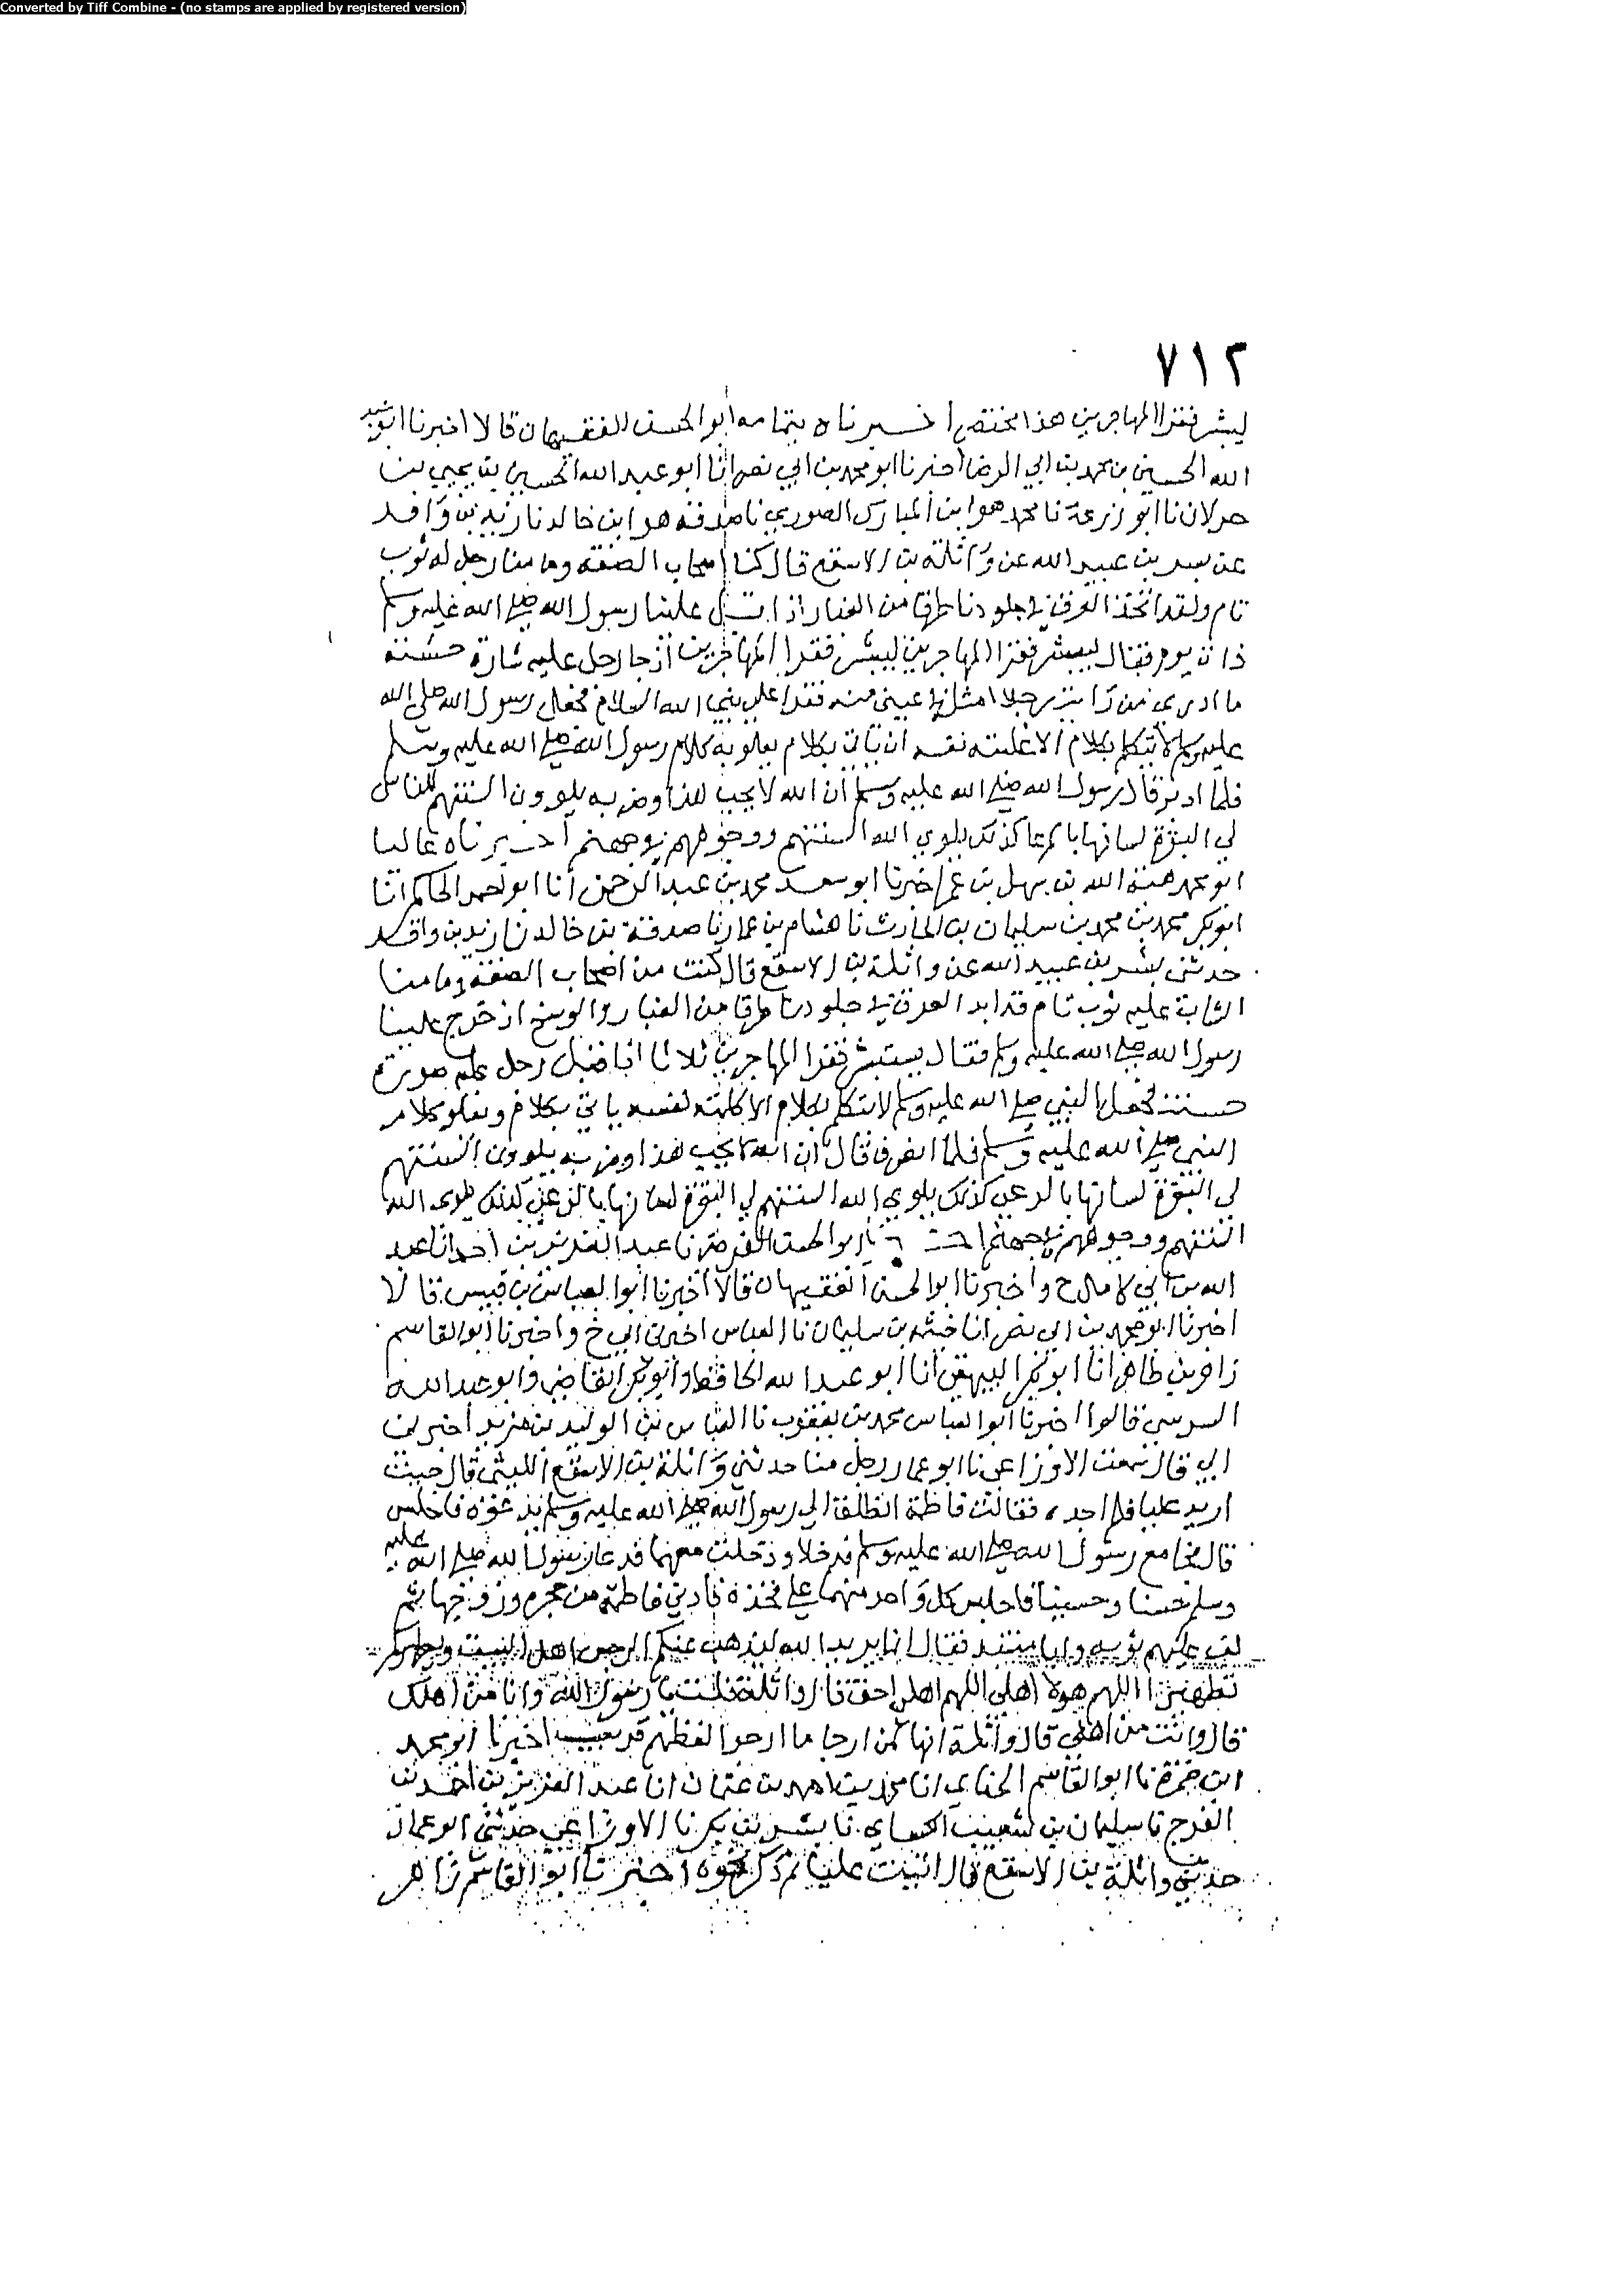 Converted by Tiff Combine - (no stamps are applied by registered version)
٧١٢
ليبشر فقرا المهاجرين هذا مختصر اخبرناه بتمامه ابو الحسن الفقيهان قالا اخبرنا ابو عبد
الله الحسين بن محمد بن ابي الرضا اخبرنا ابو محمد بن ابي نصر انا ابو عبد الله الحسين بن يحيى بن
نا ابو زرعة نا محمد هو ابن المبارك الصوري نا صدقة هو ابن خالد نا زيد بن واقد
عن بسر بن عبيد الله عن واثلة بن الاسقع قال كنا اصحاب الصفة وما منا رجل له ثوب
تام ولقد اتخذ العرق في جلودنا طرقا من الغبار اذ اقبل علينا رسول الله صلى الله عليه وسلم
ذات يوم فقال ليبشر فقرا المهاجرين ليبشر فقرا المهاجرين اذ جا رجل عليه شارة حسنة
ما ادري من رايت رجلا امثل في عيني منه فقرا على نبي الله السلام فجعل رسول الله صلى الله
عليه وسلم لا يتكلم بكلام الا نفسه ان ياتي بكلام يعلو به كلام رسول الله صلى الله عليه وسلم
فلما ادبر قال رسول الله صلى الله عليه وسلم ان الله لا يحب هذا وضربه يلوون السنتهم للناس
لي البقرة لسانها كذلك يلوي الله السنتهم ووجوههم في جهنم اخبرناه عاليا
ابو محمد هبة الله بن سهل بن عمر اخبرنا ابو سعد محمد بن عبد الرحمن انا ابو احمد الحاكم انا
ابو بكر محمد بن محمد بن سليمان بن الحارث نا هشام بن عمار نا صدقة بن خالد نا زيد بن واقد
حدثني بسر بن عبيد الله عن واثلة بن الاسقع قال كنت من اصحاب الصفة وما منا
عليه ثوب تام قد العرق في جلودنا طرقا من الغبار والوسخ اذ خرج علينا
رسول الله صلى الله عليه وسلم فقال يستبشر فقرا المهاجرين ثلاثا اذ اقبل رجل عليه صورة
حسنة فجعل النبي صلى الله عليه وسلم لا يتكلم بكلام الا كلفته نفسه ياتي بكلام ويعلو كلام
النبي صلى الله عليه وسلم فلما انصرف قال ان الله لا يحب هذا وضربه يلوون السنتهم
لي البقرة لسانها بالرعي كذلك يلوي الله السنتهم لي البقرة لسانها بالرعي كذلك يلوي الله
السنتهم ووجوههم في جهنم ابو الحسن الفرضي نا عبد العزيز بن احمد انا عبد
الله ح واخبرنا ابو الحسن الفقيهان قالا اخبرنا ابو العباس بن قبيس قالا
اخبرنا ابو محمد بن ابي نصر انا خيثمة بن سليمان نا العباس اخبرني ابي ح واخبرنا ابو القاسم
زاهر بن طاهر انا ابو بكر البيهقي انا ابو عبد الله الحافظ وابو بكر القاضي وابو عبد الله
السوسي قالوا اخبرنا ابو العباس محمد بن يعقوب نا العباس بن الوليد بن مزيد اخبرني
ابي قال سمعت الاوزاعي نا ابو عمار رجل منا حدثني واثلة بن الاسقع الليثي قال جيت
اريد عليا فلم اجده فقالت فاطمة انطلق الى رسول الله صلى الله عليه وسلم يدعوه فاجلس
قال فجا مع رسول الله صلى الله عليه وسلم فدخلا ودخلت معهما فدعا رسول الله صلى الله عليه
وسلم حسنا وحسينا فاجلس كل واحد منهما على فخذه وادنى فاطمة من حجره وزوجها ثم
لف عليهم ثوبه وانا منتبذ فقال انما يريد الله ليذهب عنكم الرجس اهل البيت ويطهركم
تطهيرا اللهم هولا اهلي اللهم اهلي احق قال واثلة قلت يا رسول الله وانا من اهلك
قال وانت من اهلي قال واثلة انها لمن ارجا ما ارجوا لفظهم قريب اخبرنا ابو محمد
ابن حمزة نا ابو القاسم الحنائي انا محمد بن احمد بن عثمان انا عبد العزيز بن احمد بن
الفرج نا سليمان بن شعيب الكيساني نا بشر بن بكر نا الاوزاعي حدثني ابو عمار
حدثني واثلة بن الاسقع قال اتيت عليا ثم ذكر نحوه اخبرنا ابو القاسم زاهر
بن